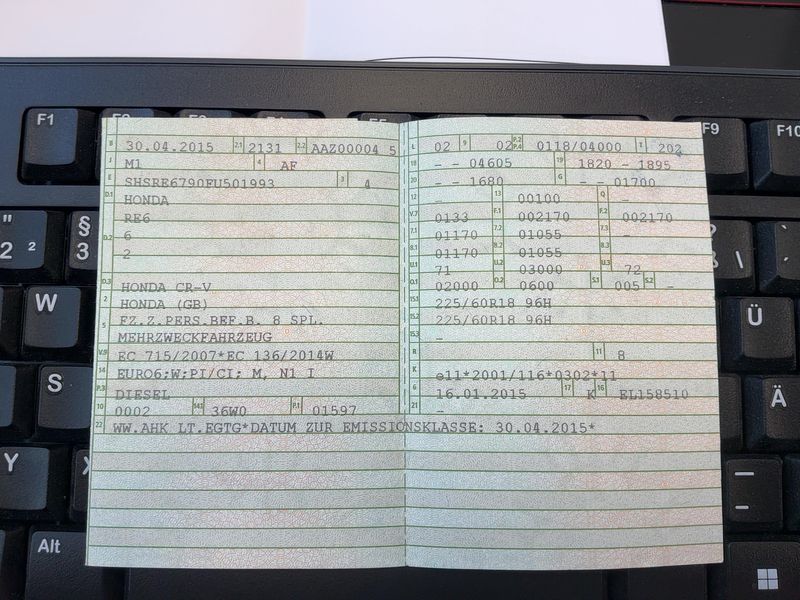 F1
F9
F10
B 30.04.2015 2.1 2131 2.2 AAZ00004 5
J M1 4 AF
E SHSRE6790FU501993 3 4
D.1 HONDA
RE6
D.2 6
2
D.3 HONDA CR-V
2 HONDA (GB)
5 FZ.Z.PERS.BEF.B. 8 SPL.
MEHRZWECKFAHRZEUG
V.9 EC 715/2007*EC 136/2014W
14 EURO6;W;PI/CI; M, N1 I
P.3 DIESEL
10 0002 14.1 36W0 P.1 01597
22 WW.AHK LT.EGTG*DATUM ZUR EMISSIONSKLASSE: 30.04.2015*
L 02 9 02 P.2 P.4 0118/04000 T 202
18 - - 04605 19 1820 - 1895
20 - - 1680 G - 01700
12 - 13 00100 Q -
V.7 0133 F.1 002170 F.2 002170
7.1 01170 7.2 01055 7.3 -
8.1 01170 8.2 01055 8.3 -
U.1 71 U.2 03000 U.3 72
O.1 02000 O.2 0600 S.1 005 S.2 -
15.1 225/60R18 96H
15.2 225/60R18 96H
15.3 -
R 11 8
K e11*2001/116*0302*11
6 16.01.2015 17 K 16 EL158510
21 -
" 2 ²
§ 3
W
S
Y
Alt
? ß \
Ü
Ä